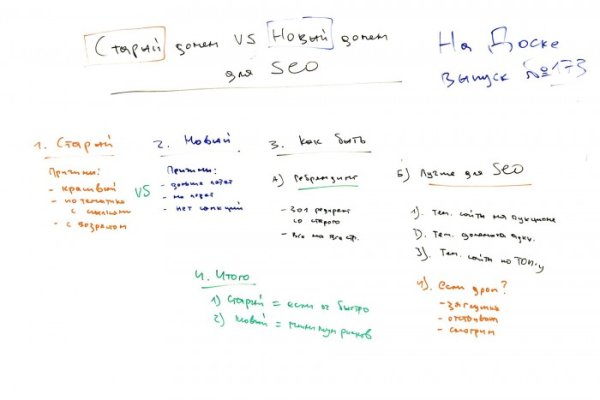 Старый домен VS Новый домен
для SEO
На Доске
выпуск №173
1. Старый
Причины:
- красивый
- по тематике
с ссылками
- с возрастом
VS
2. Новый
Причины:
- дольше
- нет санкций
3. Как быть
А) Ребрендинг
- 301 редирект
со старого
- все на все стр.
Б) Лучше для SEO
1). Тем. сайты на аукционе
2). Тем. домены аукц.
3). Тем. сайты по ТОП-у
4). если дроп?
- загнулись
- отстаивать
- смотрим
4. Итого
1) Старый = если быстро
2) Новый = минимум рисков